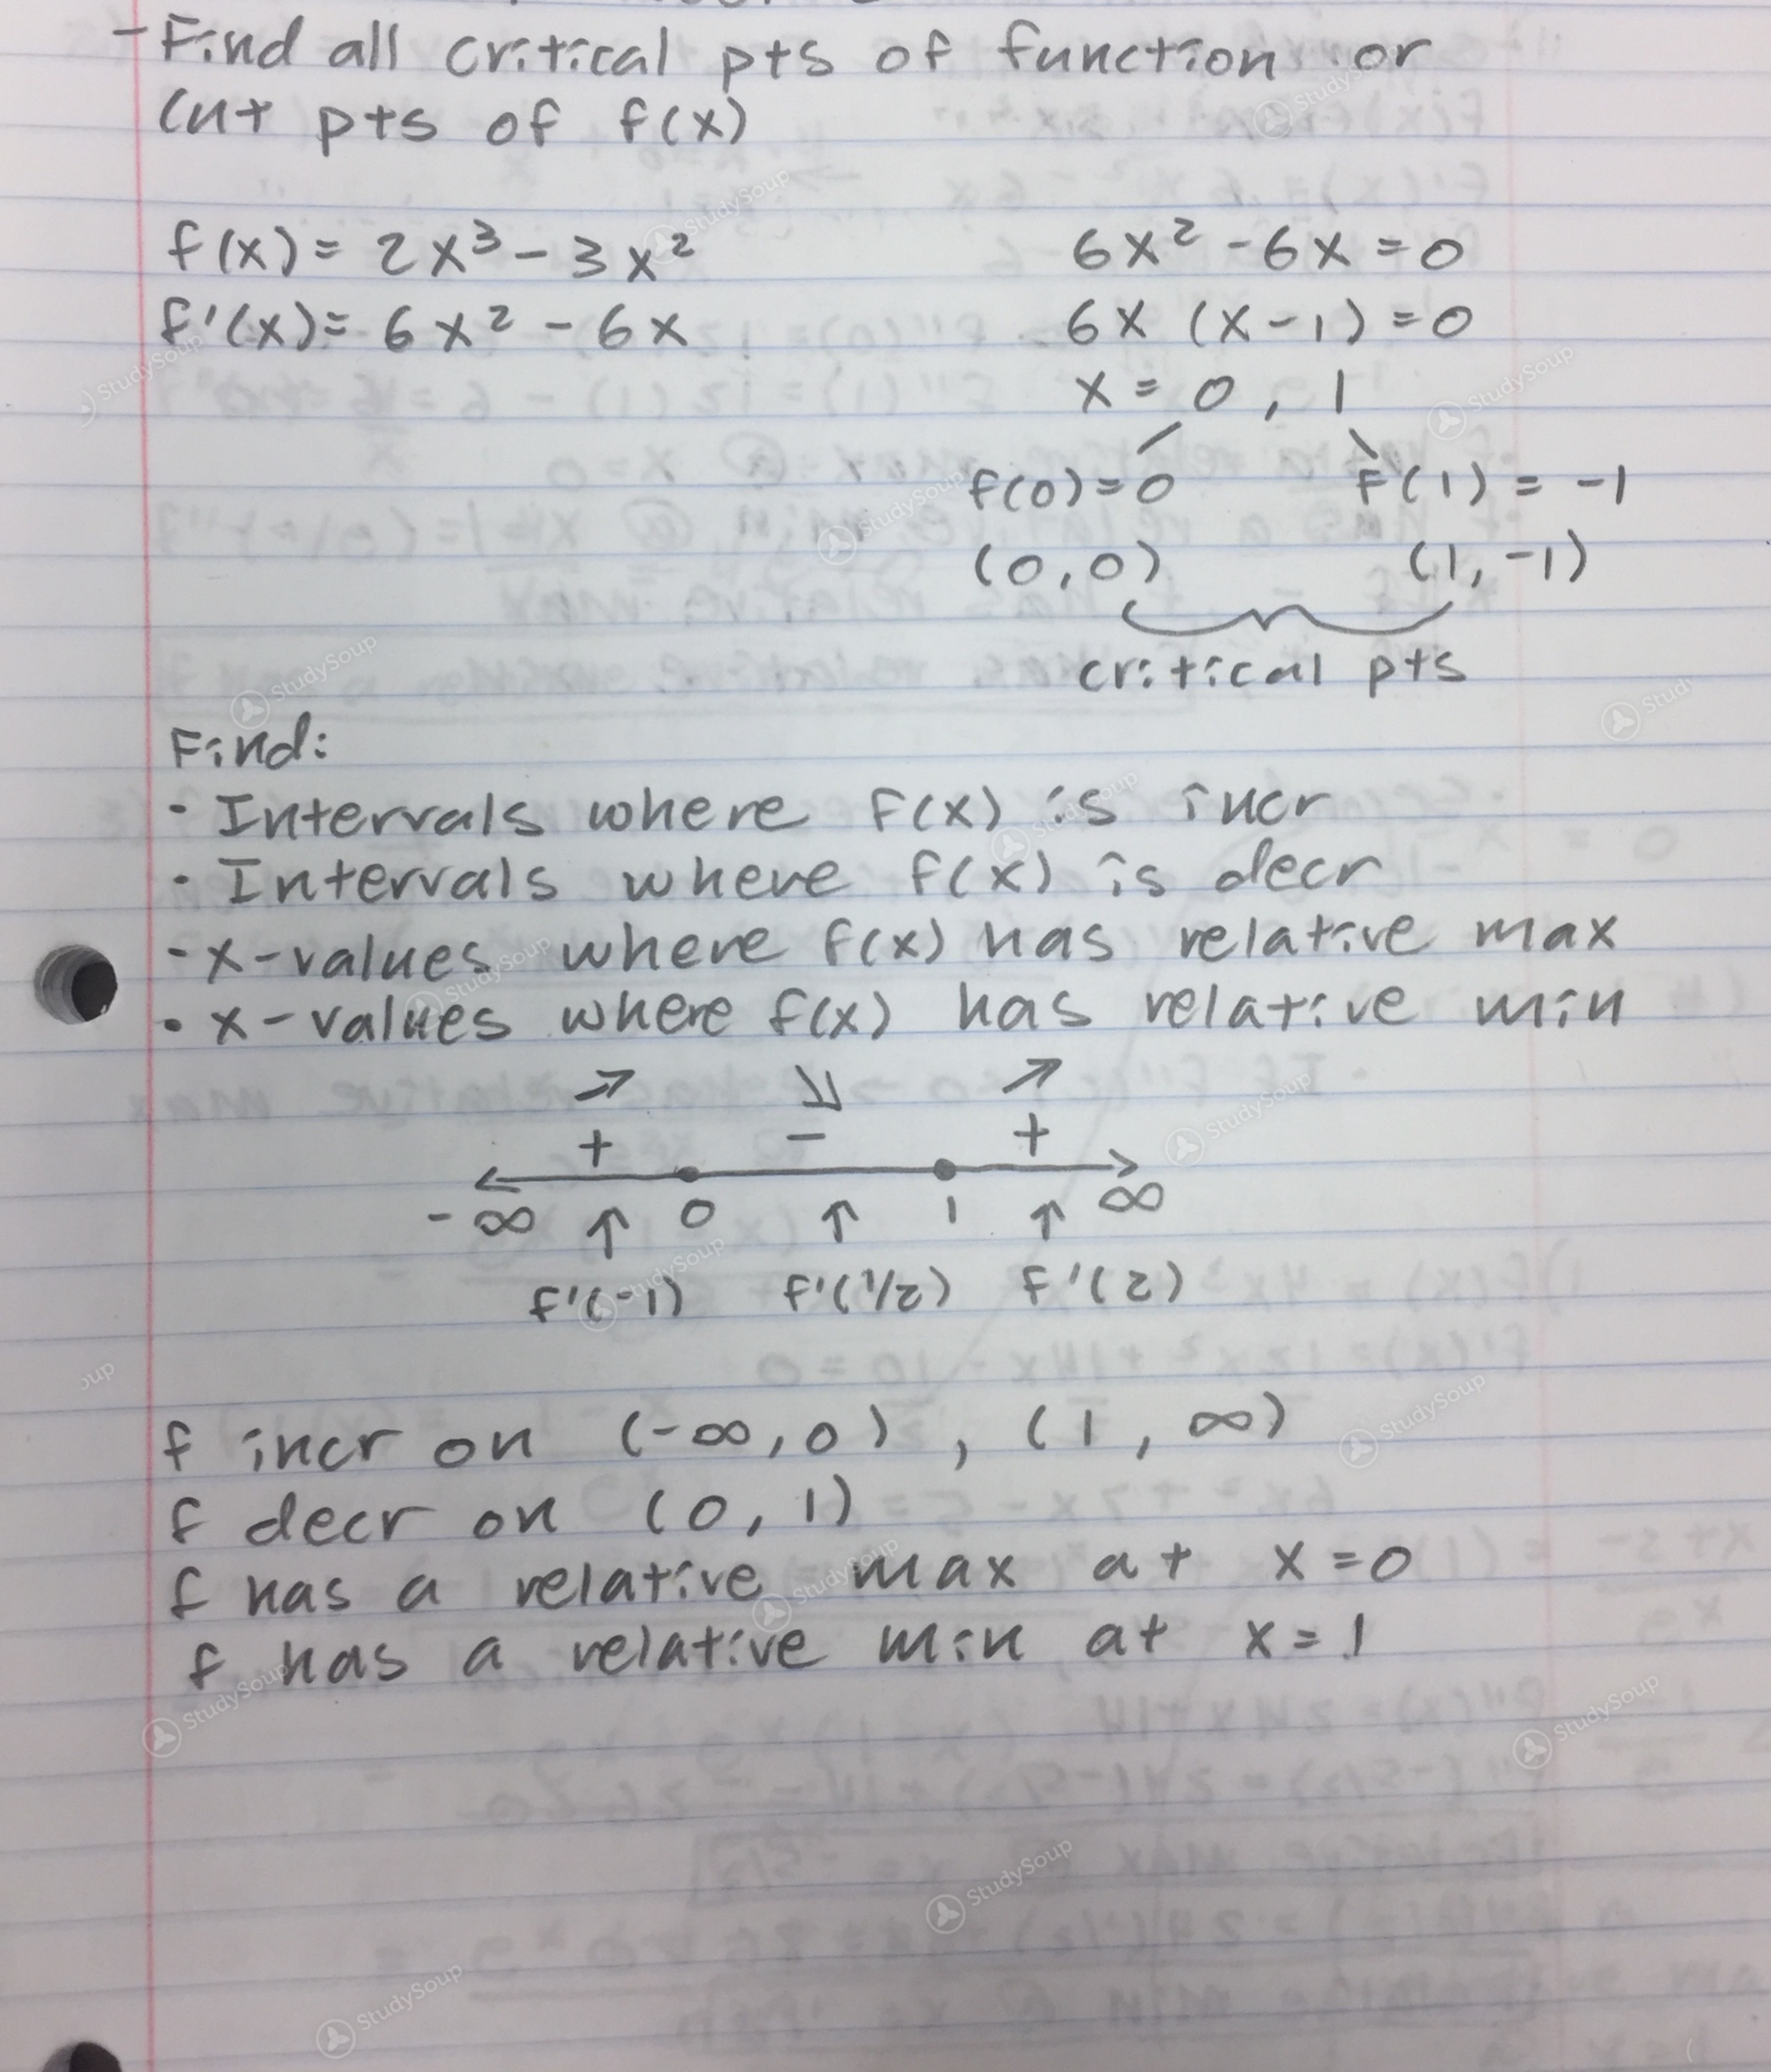 -Find all critical pts of function or
Cut pts of f(x)
f(x) = 2x³ - 3x²
f'(x) = 6x² - 6x
6x² - 6x = 0
6x (x-1) = 0
x = 0, 1
f(0) = 0 f(1) = -1
(0,0) (1,-1)
critical pts
Find:
· Intervals where f(x) is incr
· Intervals where f(x) is decr
- x-values where f(x) has relative max
• x-values where f(x) has relative min
↗ ↘ ↗
+ - +
-∞ ↑ 0 ↑ 1 ↑ ∞
f'(-1) f'(1/2) f'(2)
f incr on (-∞,0), (1, ∞)
f decr on (0, 1)
f has a relative max at x=0
f has a relative min at x=1
StudySoup